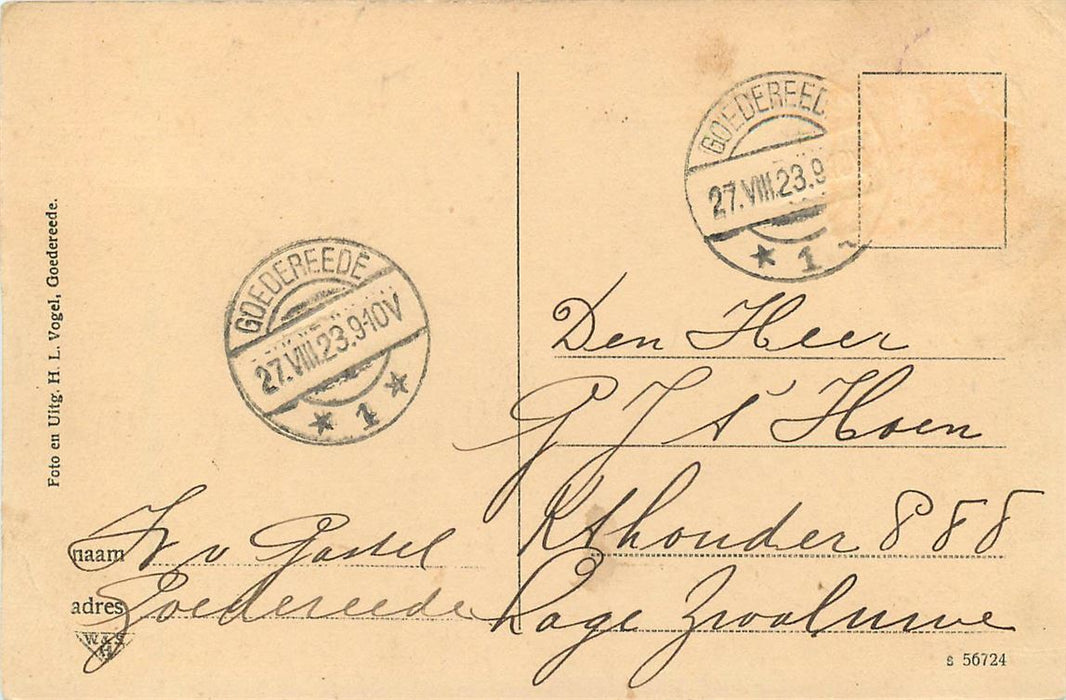 Foto en Uitg. H. L. Vogel, Goedereede.
GOEDEREEDE
27.VIII.23.9-10V
1
GOEDEREED
27.VIII.23.9
1
Den Heer
G J s' Hoen
Kthouder P S S
Lage Zwaluwe
naam Fr v Gastel
adres Goedereede
W. & S.
H
s 56724